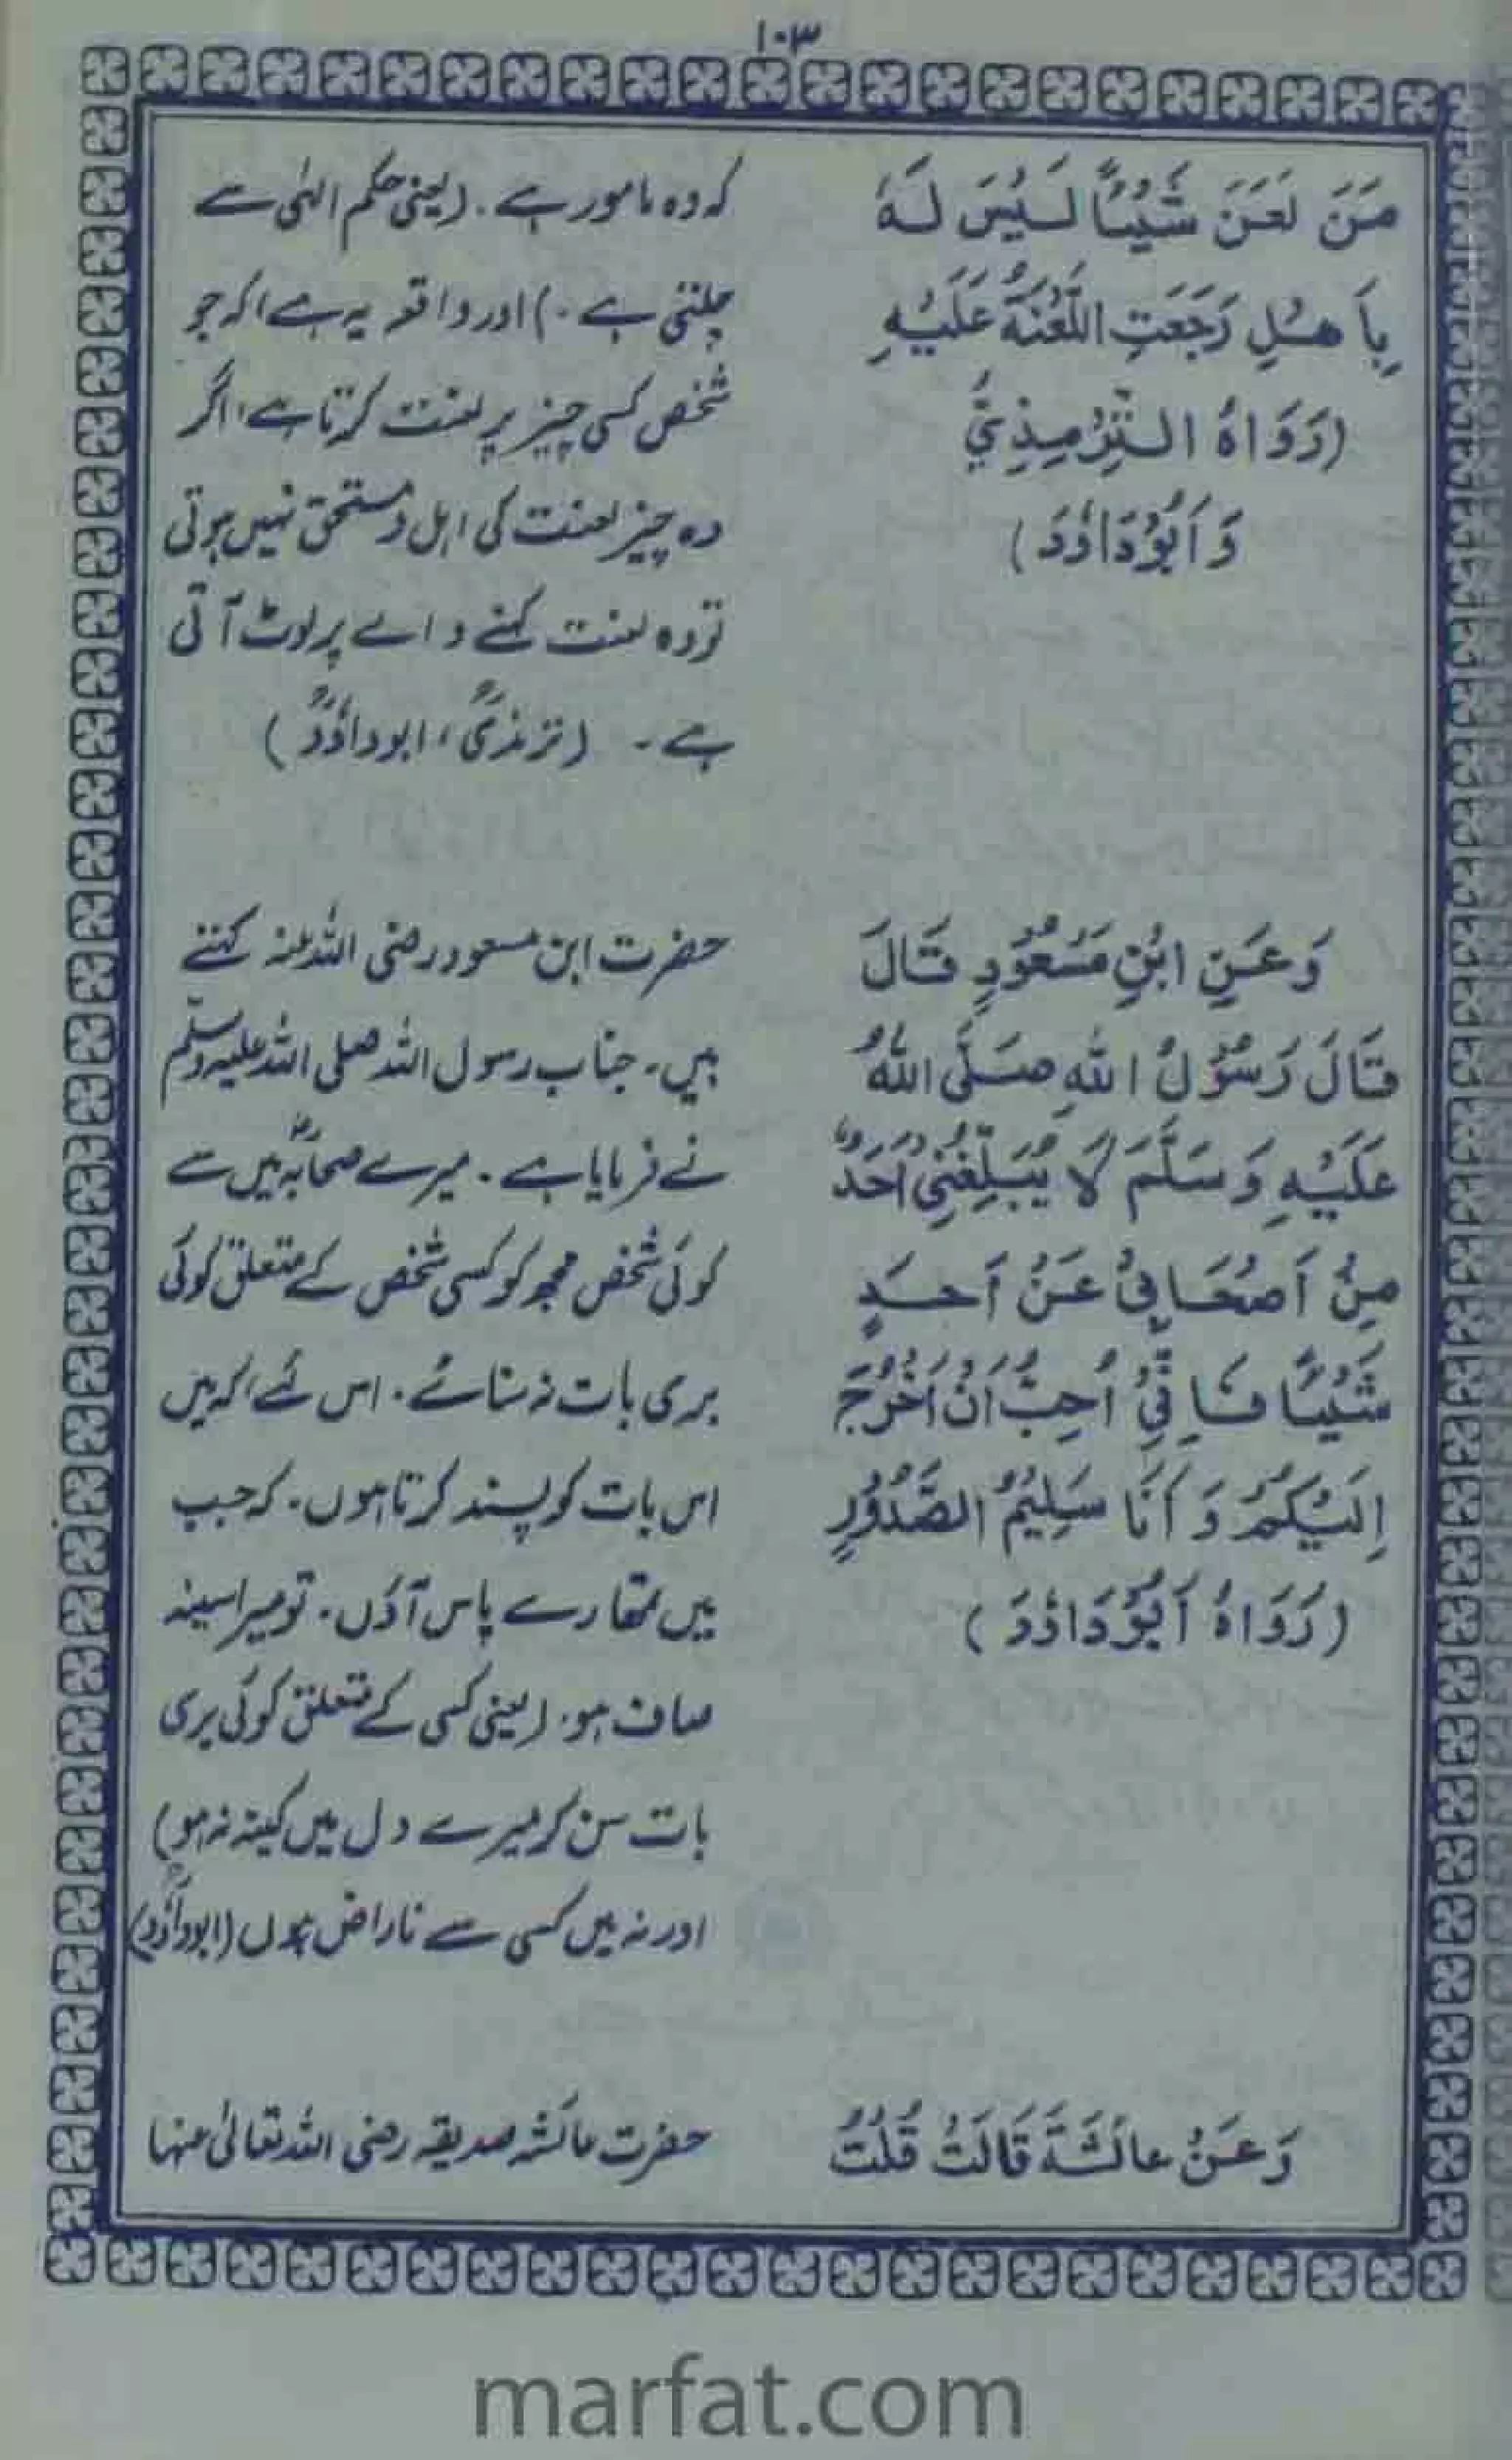 ۱۰۳
مَنَ لَعَنَ شَيْئًا لَيْسَ لَهٗ
بِاَهْلٍ رَجَعَتِ اللَّعْنَةُ عَلَيْهِ
(رَوَاهُ التِّرْمِذِيُّ
وَ اَبُوْدَاؤدَ)
وَعَنِ ابْنِ مَسْعُوْدٍ قَالَ
قَالَ رَسُوْلُ اللّٰهِ صَلَّى اللّٰهُ
عَلَيْهِ وَسَلَّمَ لَا يُبَلِّغُنِيْ اَحَدٌ
مِنْ اَصْحَابِيْ عَنْ اَحَدٍ
شَيْئًا فَاِنِّيْ اُحِبُّ اَنْ اَخْرُجَ
اِلَيْكُمْ وَ اَنَا سَلِيْمُ الصَّدُوْرِ
(رَوَاهُ اَبُوْدَاؤدَ)
وَعَنْ عائشَةَ قَالَتْ قُلْتُ
کہ وہ مامور ہے۔ (یعنی حکم الہٰی سے
چلتی ہے۔) اور واقعہ یہ ہے، کہ جو
شخص کسی چیز پر لعنت کرتا ہے، اگر
وہ چیز لعنت کی اہل و مستحق نہیں ہوتی
تو وہ لعنت کہنے والے پر لوٹ آتی
ہے۔ (ترمذیؒ، ابوداؤدؒ)
حضرت ابن مسعود رضی اللہ عنہ کہتے
ہیں۔ جناب رسول اللہ صلی اللہ علیہ وسلّم
نے فرمایا ہے۔ میرے صحابہؓ میں سے
کوئی شخص مجھ کو کسی شخص کے متعلق کوئی
بری بات نہ سنائے۔ اس لئے، کہ میں
اس بات کو پسند کرتا ہوں۔ کہ جب
میں تمھارے پاس آؤں۔ تو میرا سینہ
صاف ہو، (یعنی کسی کے متعلق کوئی بری
بات سن کر میرے دل میں کینہ نہ ہو)
اور نہ میں کسی سے ناراض ہوں (ابوداؤدؒ)
حضرت عائشہ صدیقہ رضی اللہ تعالیٰ عنہا
marfat.com